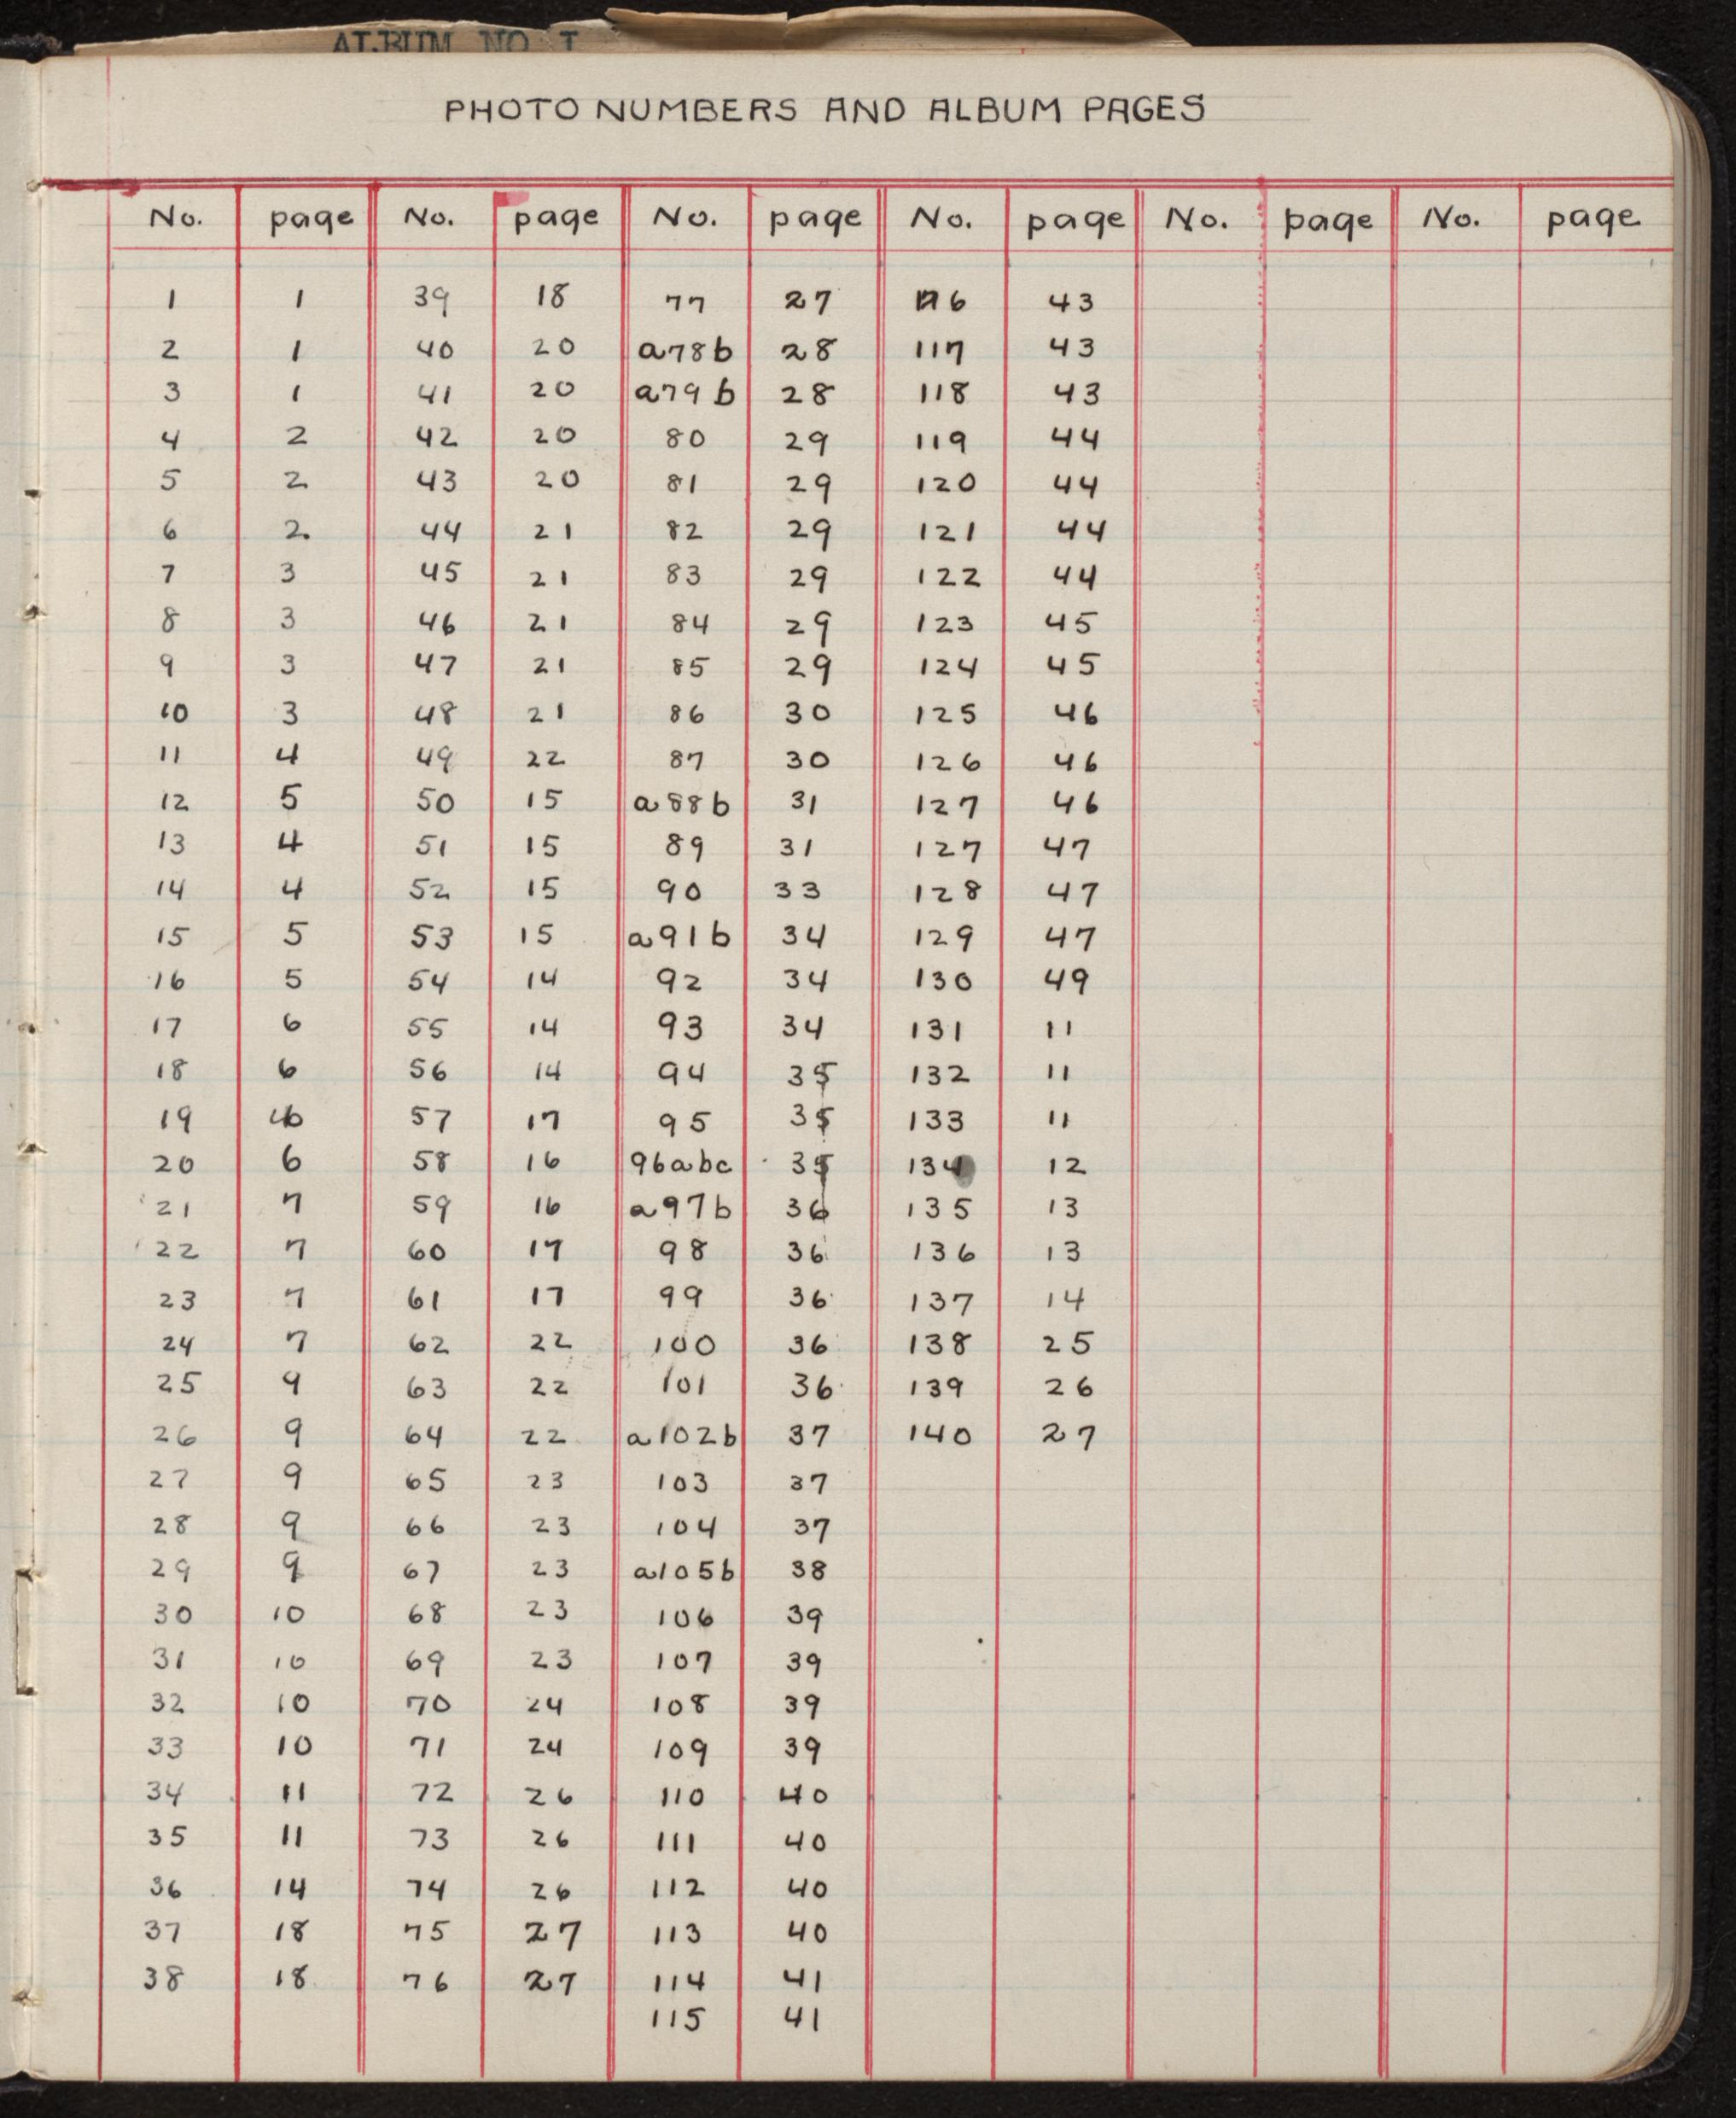 ALBUM NO I
PHOTO NUMBERS AND ALBUM PAGES
No. page No. page No. page No. page No. page No. page
1 1 39 18 77 27 116 43
2 1 40 20 a78b 28 117 43
3 1 41 20 a79b 28 118 43
4 2 42 20 80 29 119 44
5 2 43 20 81 29 120 44
6 2. 44 21 82 29 121 44
7 3 45 21 83 29 122 44
8 3 46 21 84 29 123 45
9 3 47 21 85 29 124 45
10 3 48 21 86 30 125 46
11 4 49 22 87 30 126 46
12 5 50 15 a88b 31 127 46
13 4 51 15 89 31 127 47
14 4 52 15 90 33 128 47
15 5 53 15 a91b 34 129 47
16 5 54 14 92 34 130 49
17 6 55 14 93 34 131 11
18 6 56 14 94 35 132 11
19 6 57 17 95 35 133 11
20 6 58 16 96abc 35 134 12
21 7 59 16 a97b 36 135 13
22 7 60 17 98 36 136 13
23 7 61 17 99 36 137 14
24 7 62 22 100 36 138 25
25 9 63 22 101 36 139 26
26 9 64 22 a102b 37 140 27
27 9 65 23 103 37
28 9 66 23 104 37
29 9 67 23 a105b 38
30 10 68 23 106 39
31 10 69 23 107 39
32 10 70 24 108 39
33 10 71 24 109 39
34 11 72 26 110 40
35 11 73 26 111 40
36 14 74 26 112 40
37 18 75 27 113 40
38 18 76 27 114 41
115 41